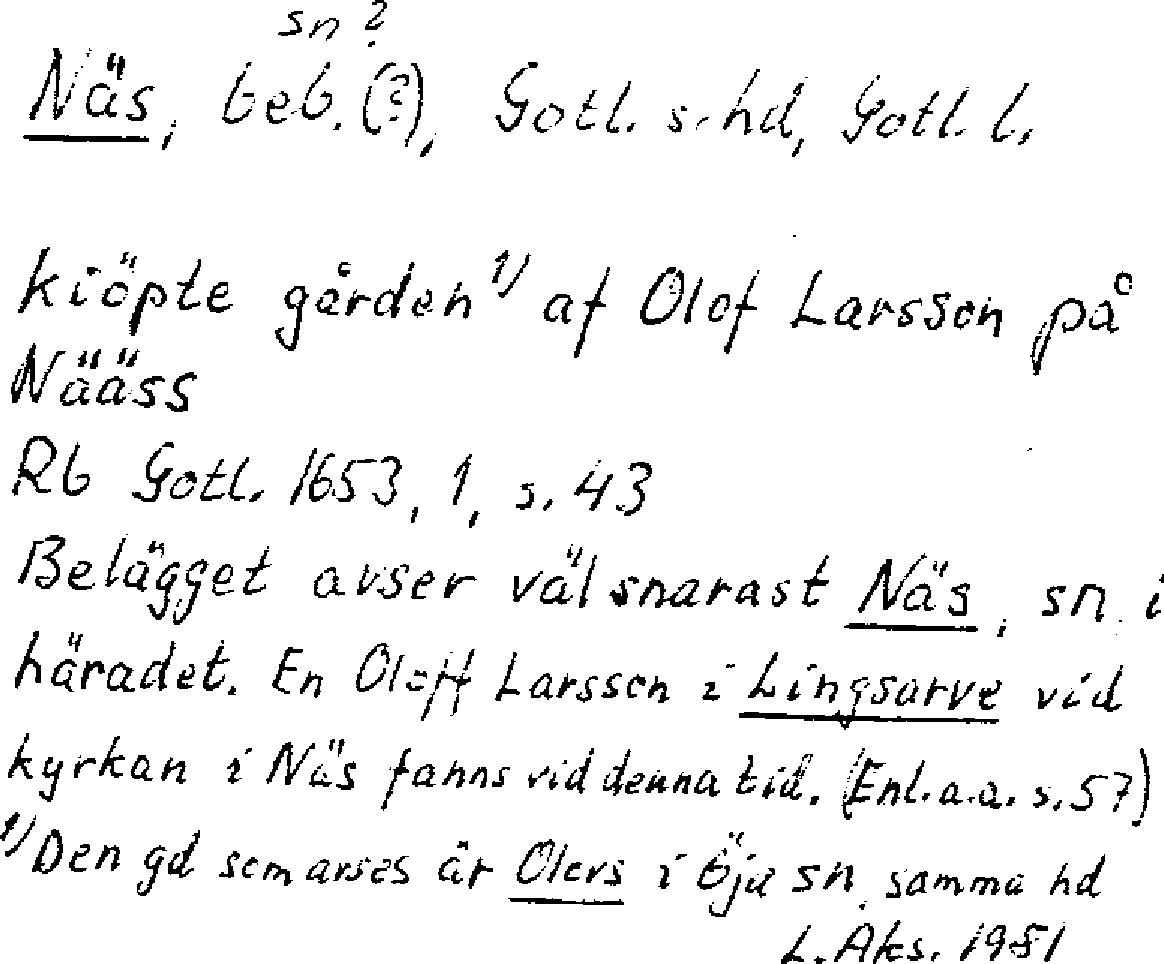 sn ?
Näs, beb. (?), Gotl. s. hd, Gotl. l.
kiöpte gården 1) af Olof Larsson på
Nääss
Rb Gotl. 1653, 1, s. 43
Belägget avser väl snarast Näs, sn i
häradet. En Oloff Larsson i Lingsarve vid
kyrkan i Näs fanns vid denna tid. (Enl. a.a. s. 57)
1) Den gd som avses är Olers i Öja sn, samma hd
L. Aks. 1981